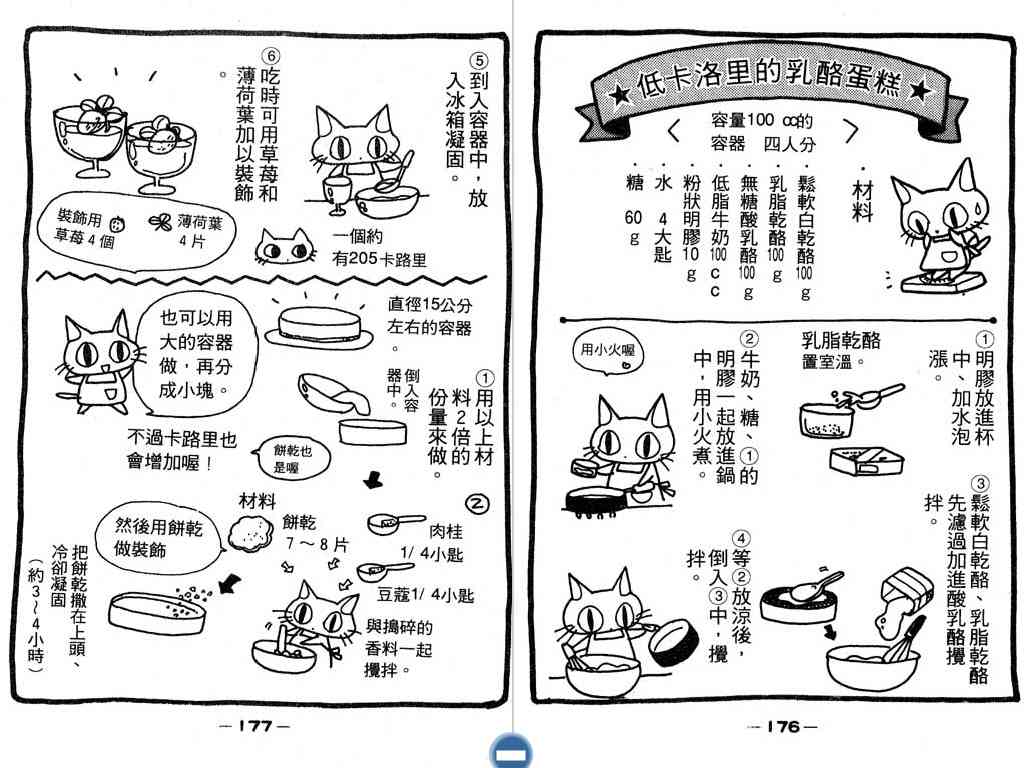 ★低卡洛里的乳酪蛋糕★
容量100 cc的
容器 四人分
・材料
鬆軟白乾酪100g
・乳脂乾酪100g
・無糖酸乳酪100g
・低脂牛奶100cc
・粉狀明膠10g
・水 4大匙
・糖 60g
①明膠放進杯
中、加水泡
漲。
乳脂乾酪
置室溫。
②牛奶、糖、①的
明膠一起放進鍋
中，用小火煮。
用小火喔
③鬆軟白乾酪、乳脂乾酪
先濾過加進酸乳酪攪
拌。
④等②放涼後，
倒入③中，攪
拌。
－176－
⑤到入容器中，放
入冰箱凝固。
⑥吃時可用草莓和
薄荷葉加以裝飾
。
裝飾用
草莓4個
薄荷葉
4片
一個約
有205卡路里
也可以用
大的容器
做，再分
成小塊。
不過卡路里也
會增加喔！
直徑15公分
左右的容器
。
①用以上材
料2倍的
份量來做。
倒入容
器中。
餅乾也
是喔
②
材料
餅乾
7～8片
肉桂
1/4小匙
豆蔻1/4小匙
與搗碎的
香料一起
攪拌。
然後用餅乾
做裝飾
把餅乾撒在上頭、
冷卻凝固
（約3～4小時）
－177－